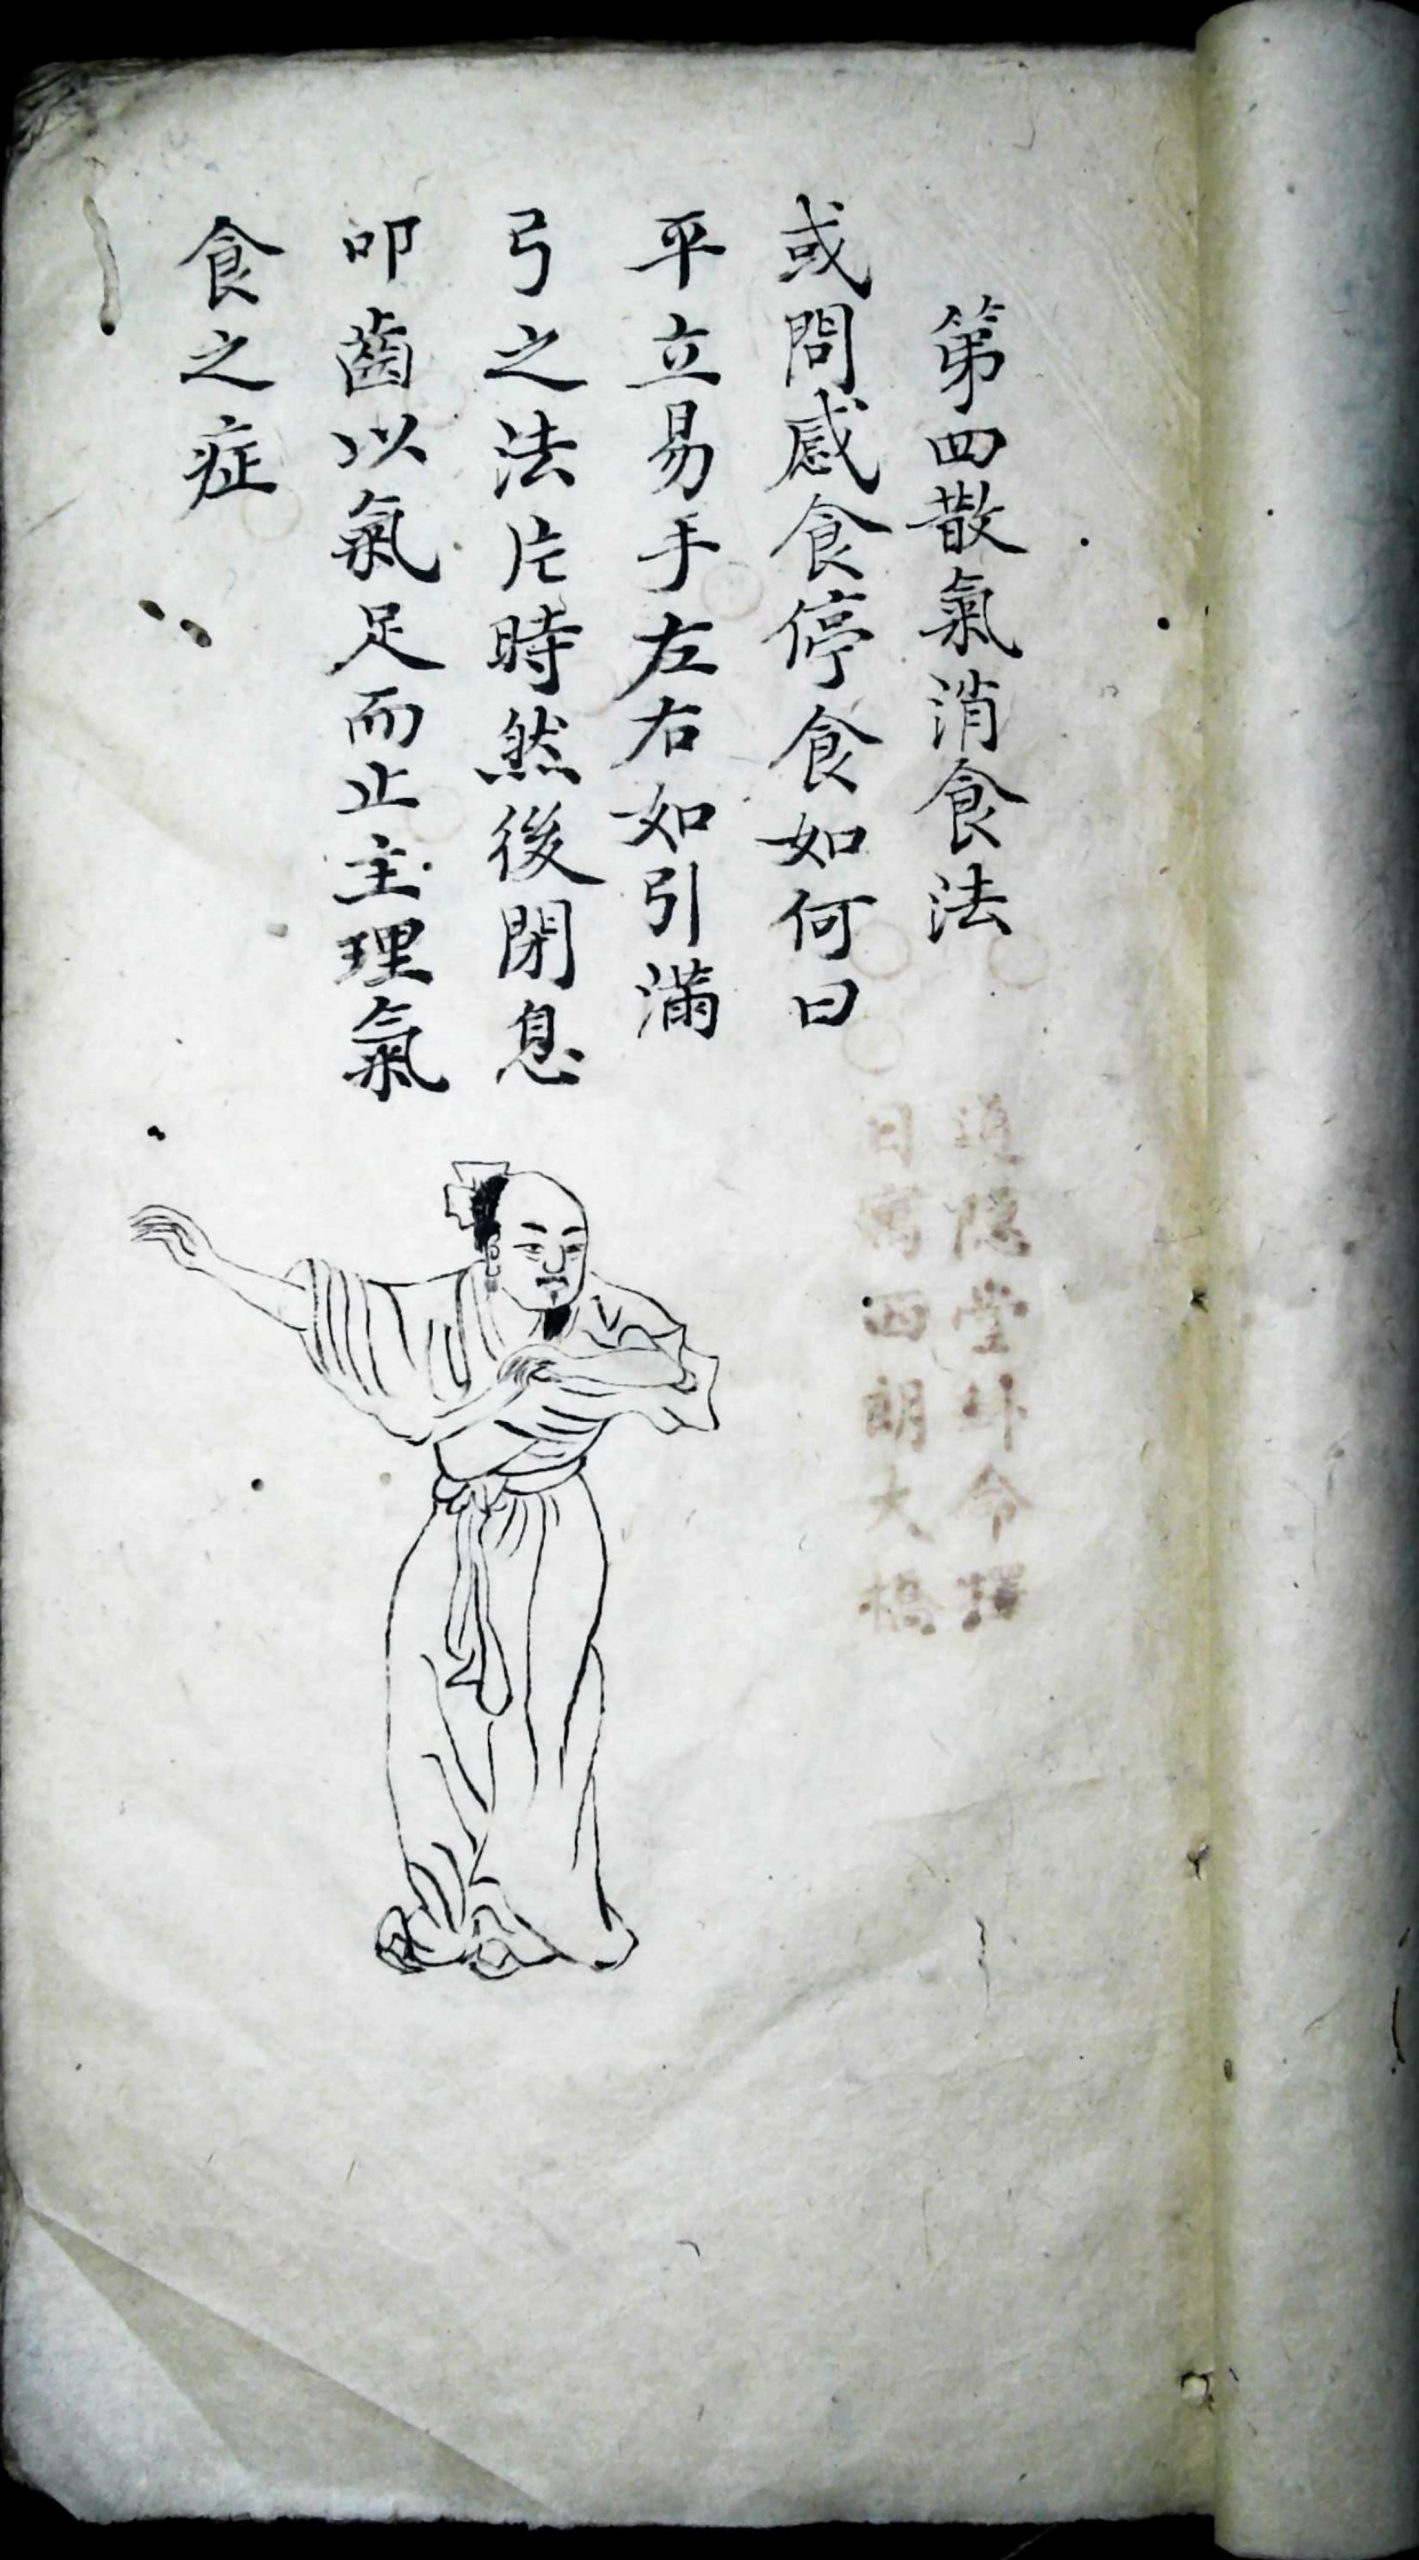 第四散氣消食法
或問感食停食如何曰
平立易手左右如引滿
弓之法片時然後閉息
叩齒以氣足而止主理氣
食之症
隱堂斗令擇
日 西朗大橋